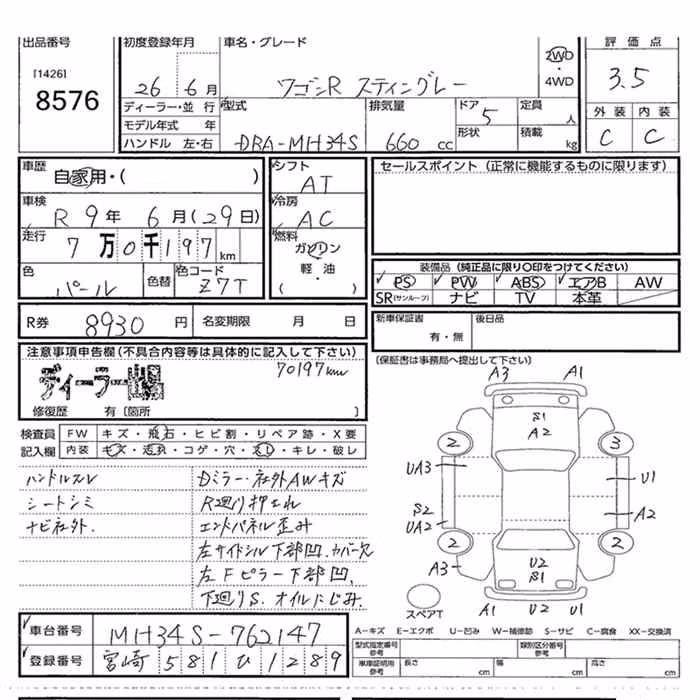 出品番号
[1426]
8576
初度登録年月
26 年 6 月
車名・グレード
ワゴンR スティングレー
2WD
・
4WD
評価点
3.5
外装 内装
C C
ディーラー・並行
モデル年式 年
ハンドル 左・右
型式
DBA-MH34S
排気量
660 cc
ドア 5
形状
定員 人
積載 kg
車歴
自家用・( )
車検
R 9年 6月(29日)
走行
7万0千197km
色
パール
色替
色コード
Z7T
シフト
AT
冷房
AC
燃料
ガソリン
軽・油
( )
セールスポイント (正常に機能するものに限ります)
装備品 (純正品に限り○印をつけてください)
PS PW ABS エアB AW
SR(サンルーフ) ナビ TV 本革
R券 8930 円 名変期限 月 日
新車保証書
有・無
後日品
(保証書は事務局へ提出して下さい)
注意事項申告欄(不具合内容等は具体的に記入して下さい)
ディーラー
70197km
修復歴 有〔箇所 〕
検査員
記入欄
FW キズ・飛石・ヒビ割・リペア跡・X要
内装 キズ・汚れ・コゲ・穴・スレ・キレ・破レ
ハンドルスレ
シートシミ
ナビ社外.
Dミラー・社外AWキズ
R廻り押され
エンドパネル歪み
左サイドシル下部凹.カバー欠
左Fピラー下部凹.
下廻りS.オイルにじみ.
A3 A1
S1
A2
2 3
UA3 U1
S2 A2
UA2
2 2
A3
U2
S1
A1 U2 U1
スペアT
車台番号 MH34S-762147
登録番号 宮崎 581 ひ 1289
A-キズ E-エクボ U-凹み W-補修跡 S-サビ C-腐食 XX-交換済
型式指定番号
参考
類別区分番号
参考
車車証明用
参考
長さ cm 幅 cm 高さ cm